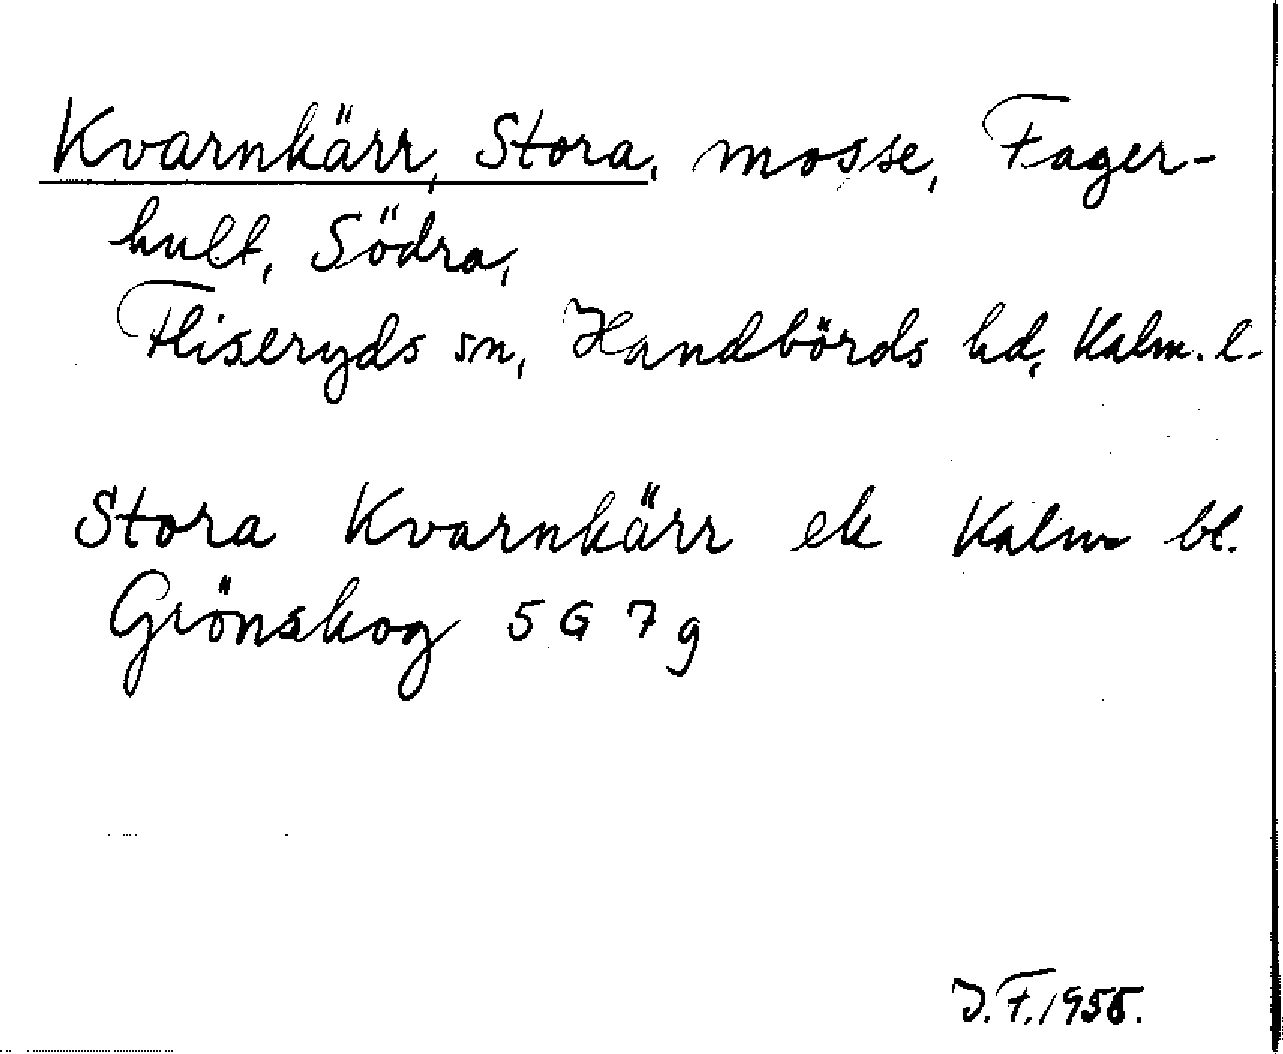 Kvarnkärr, Stora, mosse, Fager-
hult, Södra,
Fliseryds sn, Handbörds hd, Kalm. l.
Stora Kvarnkärr ek Kalm bl.
Grönskog 5 G 7 g
J. F. 1955.